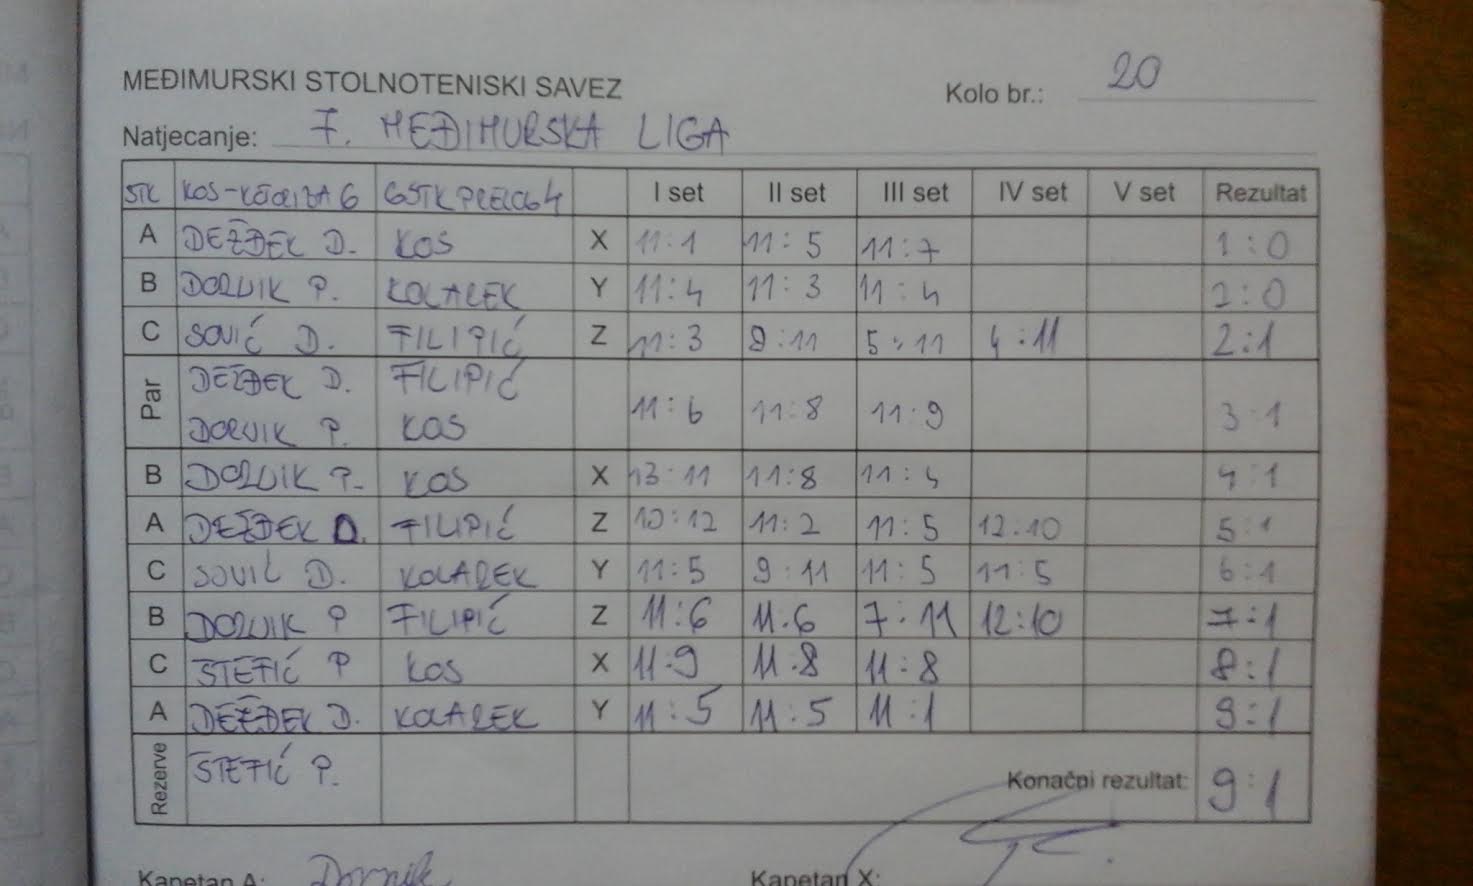 MEĐIMURSKI STOLNOTENISKI SAVEZ
Kolo br.: 20
Natjecanje: 7. MEĐIMURSKA LIGA
STK I set II set III set IV set V set Rezultat
A DEŽĐEK D. KOS X 11:1 11:5 11:7 1:0
B DORVIK P. KOLAREK Y 11:4 11:3 11:4 2:0
C SOVIĆ D. FILIPIĆ Z 11:3 9:11 5:11 4:11 2:1
Par DEŽĐEK D. FILIPIĆ 11:6 11:8 11:9 3:1
DORVIK P. KOS
B DORVIK P. KOS X 13:11 11:8 11:4 4:1
A DEŽĐEK D. FILIPIĆ Z 10:12 11:2 11:5 12:10 5:1
C SOVIĆ D. KOLAREK Y 11:5 9:11 11:5 11:5 6:1
B DORVIK P FILIPIĆ Z 11:6 11:6 7:11 12:10 7:1
C ŠTEFIĆ P KOS X 11:9 11:8 11:8 8:1
A DEŽĐEK D. KOLAREK Y 11:5 11:5 11:1 9:1
Rezerve ŠTEFIĆ P. Konačni rezultat: 9:1
Kapetan A: Kapetan X: